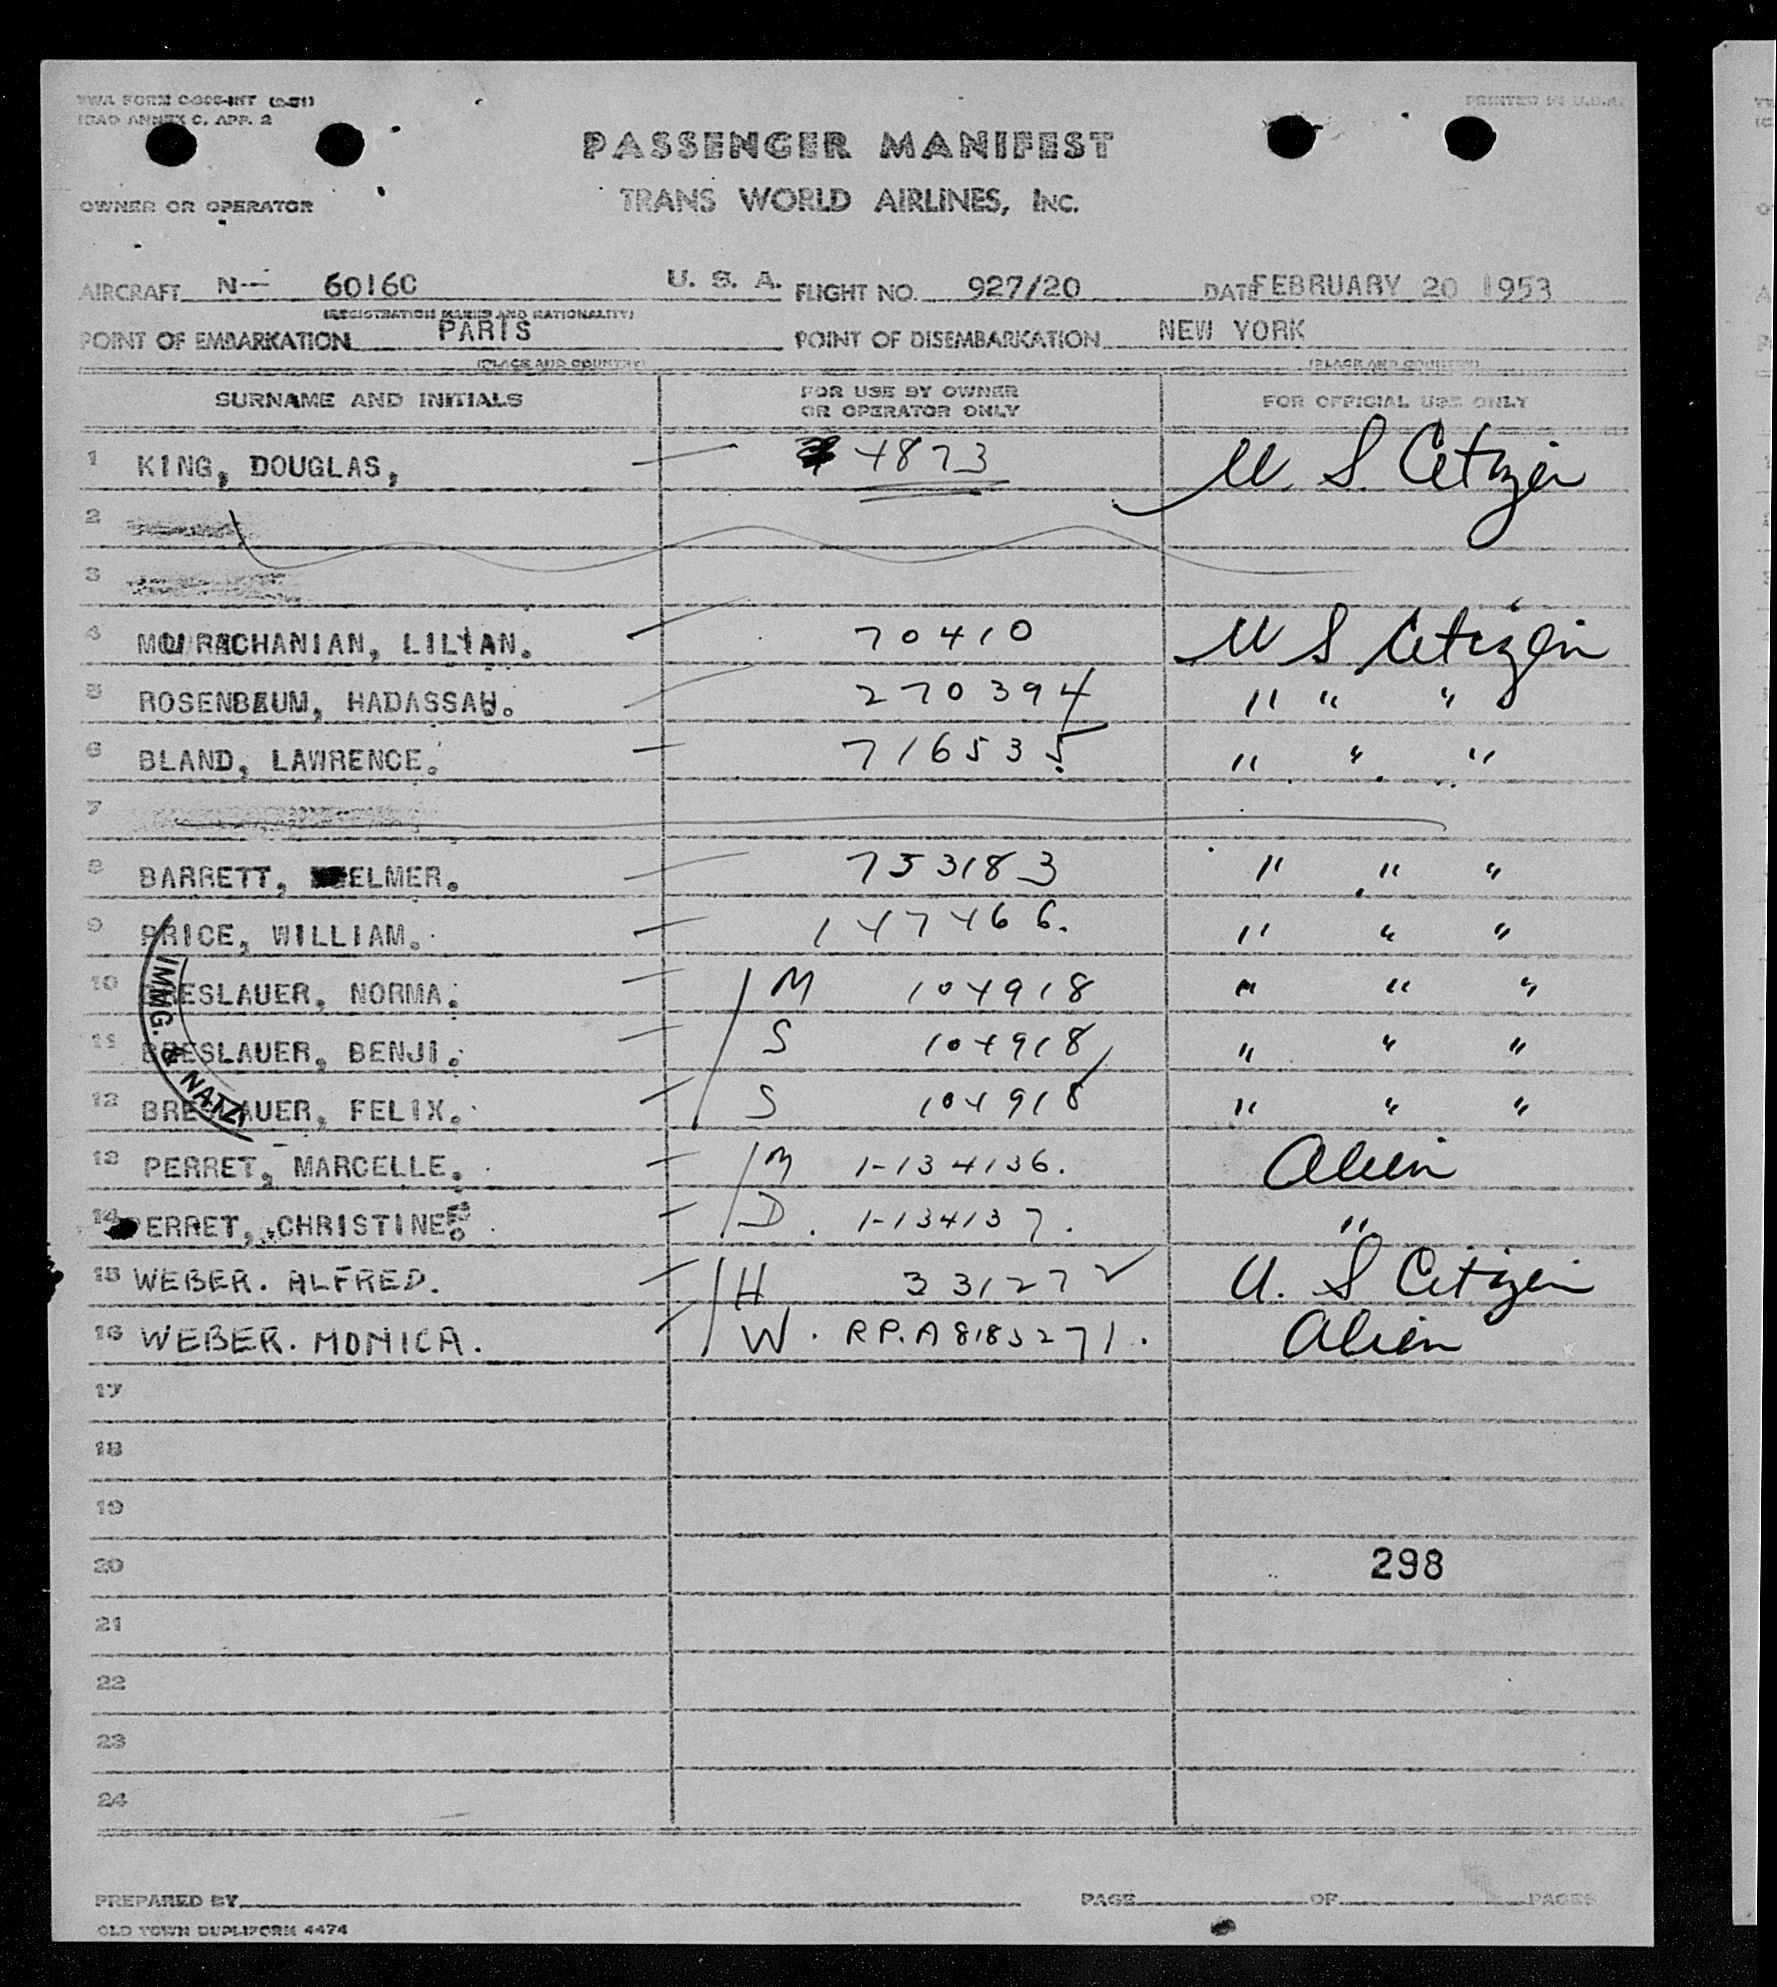 TWA FORM C-306-INT (2-51)
ICAO ANNEX C. APP. 2
PRINTED IN U.S.A.
PASSENGER MANIFEST
TRANS WORLD AIRLINES, INC.
OWNER OR OPERATOR
AIRCRAFT N-- 6016C U. S. A. FLIGHT NO. 927/20 DATE FEBRUARY 20 1953
(REGISTRATION MARKS AND NATIONALITY)
POINT OF EMBARKATION PARIS POINT OF DISEMBARKATION NEW YORK
(PLACE AND COUNTRY) (PLACE AND COUNTRY)
SURNAME AND INITIALS FOR USE BY OWNER OR OPERATOR ONLY FOR OFFICIAL USE ONLY
1 KING, DOUGLAS, 4873 U. S. Citizen
2
3
4 MOURACHANIAN, LILIAN. 70410 U S Citizen
5 ROSENBAUM, HADASSAH. 270394 " " "
6 BLAND, LAWRENCE. 716535 " " "
7
8 BARRETT, ELMER. 753183 " " "
9 PRICE, WILLIAM. 147466. " " "
10 BRESLAUER, NORMA. M 104918 " " "
11 BRESLAUER, BENJI. S 104918 " " "
12 BRESLAUER, FELIX. S 104918 " " "
IMMG. & NATZ
13 PERRET, MARCELLE. M 1-134136. Alien
14 PERRET, CHRISTINE D. 1-134137. "
15 WEBER. ALFRED. H 331272 U. S Citizen
16 WEBER. MONICA. W. R.P. A8185271. Alien
17
18
19
20 298
21
22
23
24
PREPARED BY PAGE OF PAGES
OLD TOWN DUPLIFORM 4474